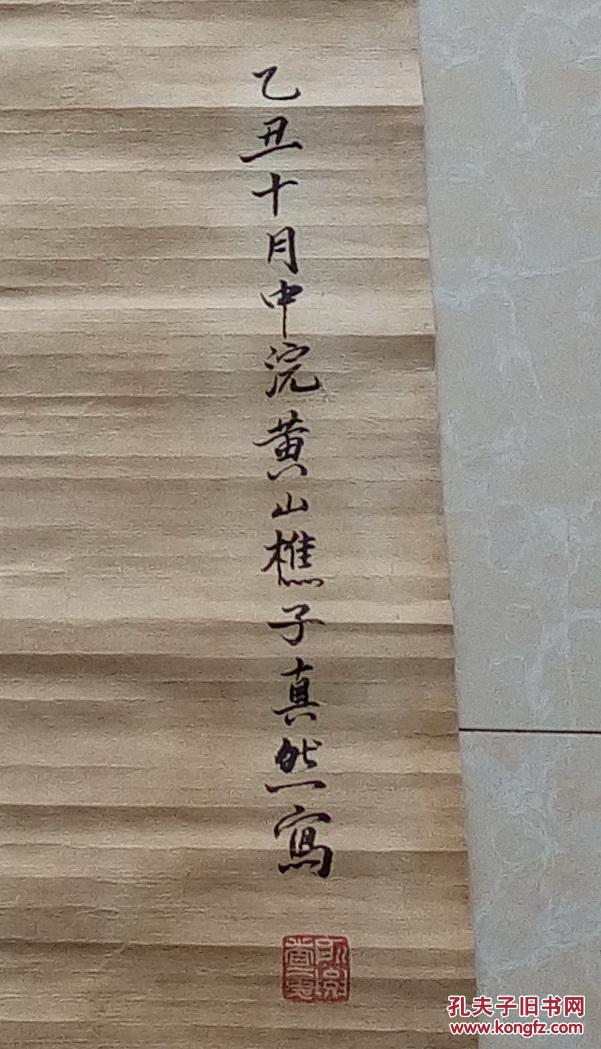 乙丑十月中浣黄山樵子真然寫
孔夫子旧书网
www.kongfz.com